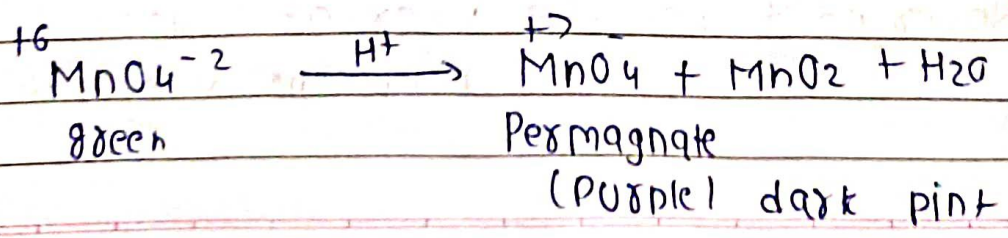 +6 +7
MnO4⁻² H+ → MnO4⁻ + MnO2 + H2O
green Permagnate
(purple) dark pink